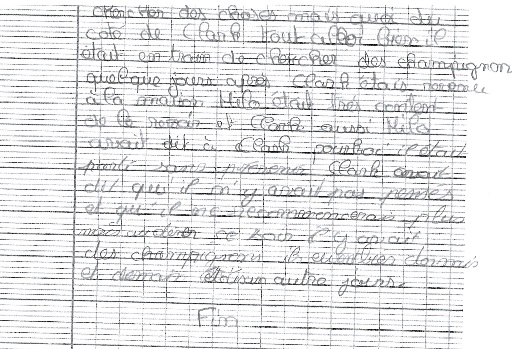 chercher des choses mais quoi du
coté de Clark tout aller bien il
était en train de chercher des champignon
quelque jours après Clark était revenu
à la maison Milo était très content
de le revoir et Clark aussi Milo
avait dit à Clark pourquoi il était
parti sans prévenir Clark avait
dit qu'il n'y avait pas pensés
et qu'il ne recommencerais plus
mais ce soir il y avait
des champignons il
et demain un autre jours.
Fin